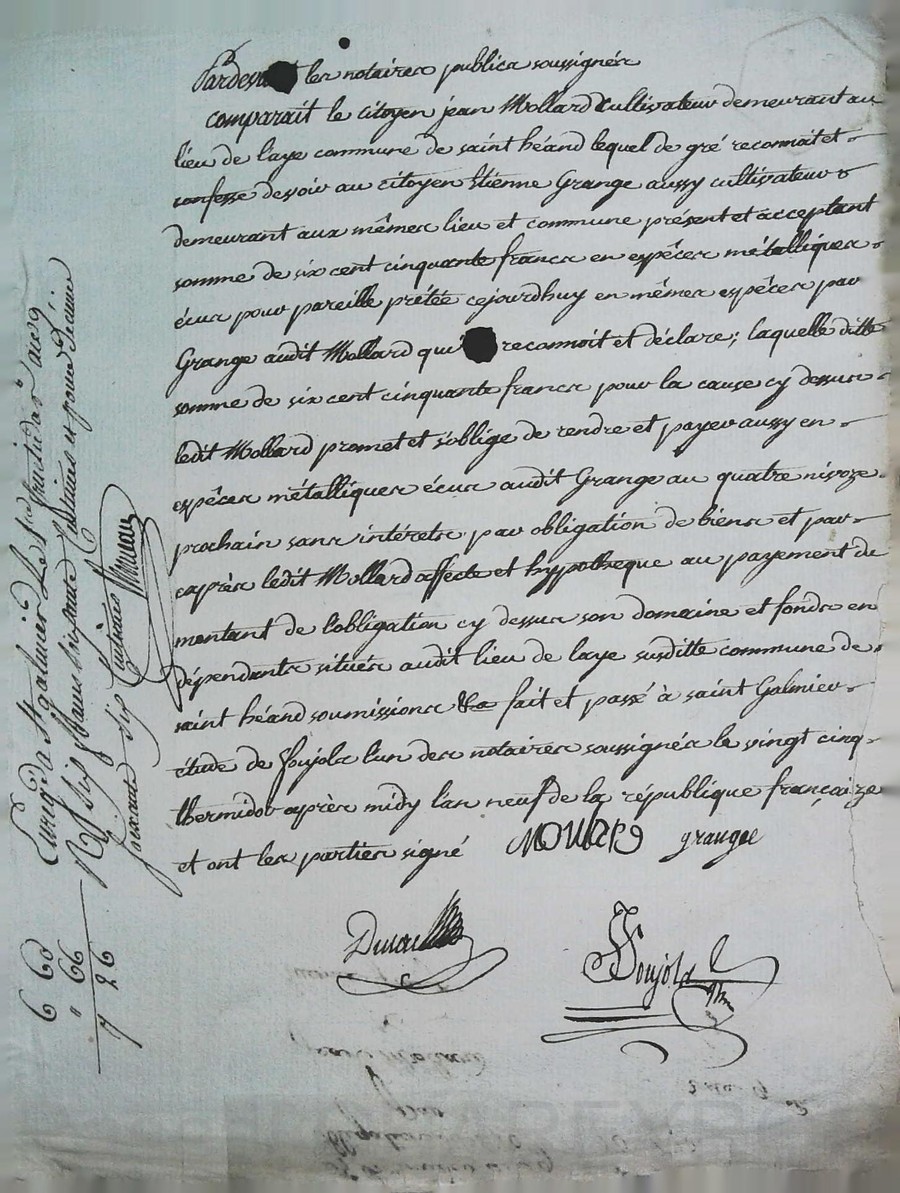 Pardevant les notaires publics soussignés
comparait le citoyen jean Mollard Cultivateur demeurant au
lieu de laye commune de saint héand lequel de gré reconnoit et
confesse devoir au citoyen Etienne Grange aussy cultivateur
demeurant aux mêmes lieu et commune présent et acceptant
somme de six cent cinquante francs en espêces métalliques
écus pour pareille prêtée cejourdhuy en mêmes espêces par
Grange audit Mollard qui reconnoit et déclare; laquelle ditte
somme de six cent cinquante francs pour la cause cy dessus
ledit Mollard promet et s'oblige de rendre et payer aussy en
espêces métalliques écus audit Grange au quatre nivoze
prochain sans intérets; par obligation de biens et par
exprès ledit Mollard affecte et hypotheque au payement du
montant de l'obligation cy dessus son domaine et fonds en
dépendants situés audit lieu de laye susditte commune de
saint héand soumissions &ca fait et passé à saint Galmier
étude de Soujols l'un des notaires soussignés le vingt cinq
thermidor après midy l'an neuf de la république françaize
et ont les parties signé MOLLARD grange
Soujols
Enreg. à St galmier Le fructidor an 9
Reçu six francs soixante Centimes et pour Décime
soixante six Centimes
6 60
" 66
7 26